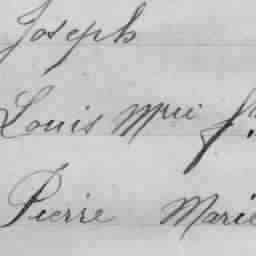 Joseph
Louis Mrie fs
Pierre Marie